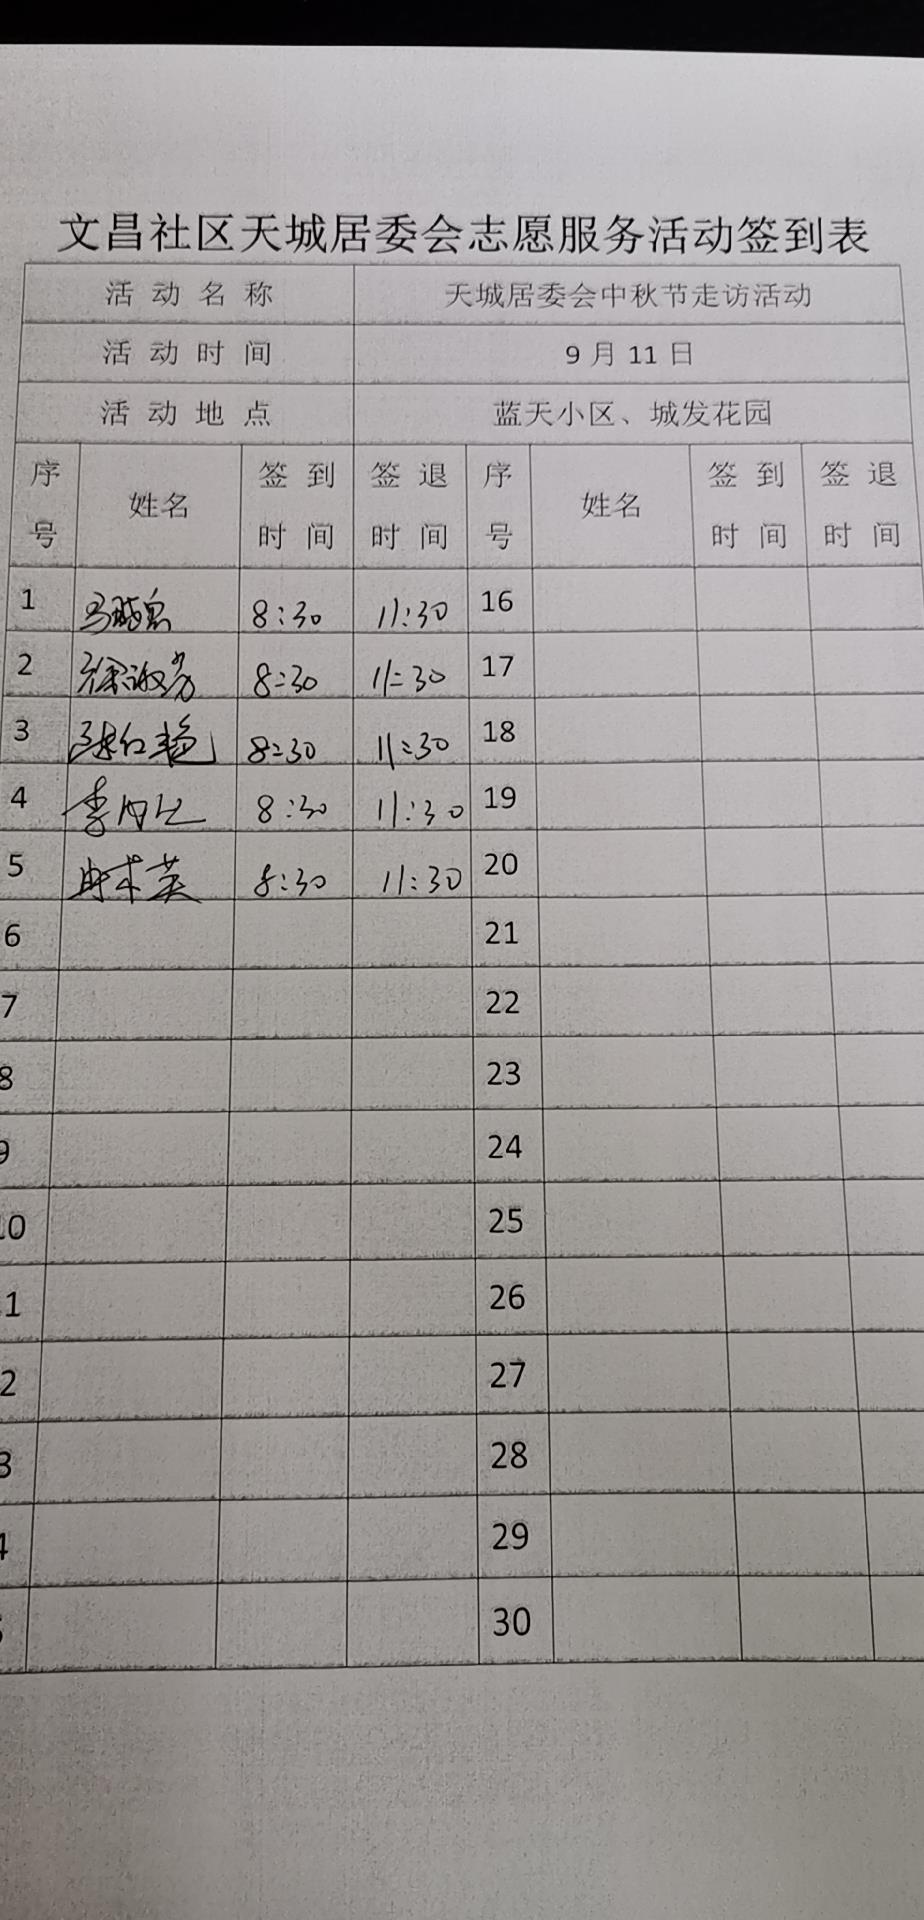 文昌社区天城居委会志愿服务活动签到表
活动名称 天城居委会中秋节走访活动
活动时间 9月11日
活动地点 蓝天小区、城发花园
序号 姓名 签到时间 签退时间 序号 姓名 签到时间 签退时间
1 8:30 11:30 16
2 徐淑芳 8:30 11:30 17
3 张红艳 8:30 11:30 18
4 李 8:30 11:30 19
5 英 8:30 11:30 20
6 21
7 22
8 23
9 24
10 25
11 26
12 27
13 28
14 29
15 30